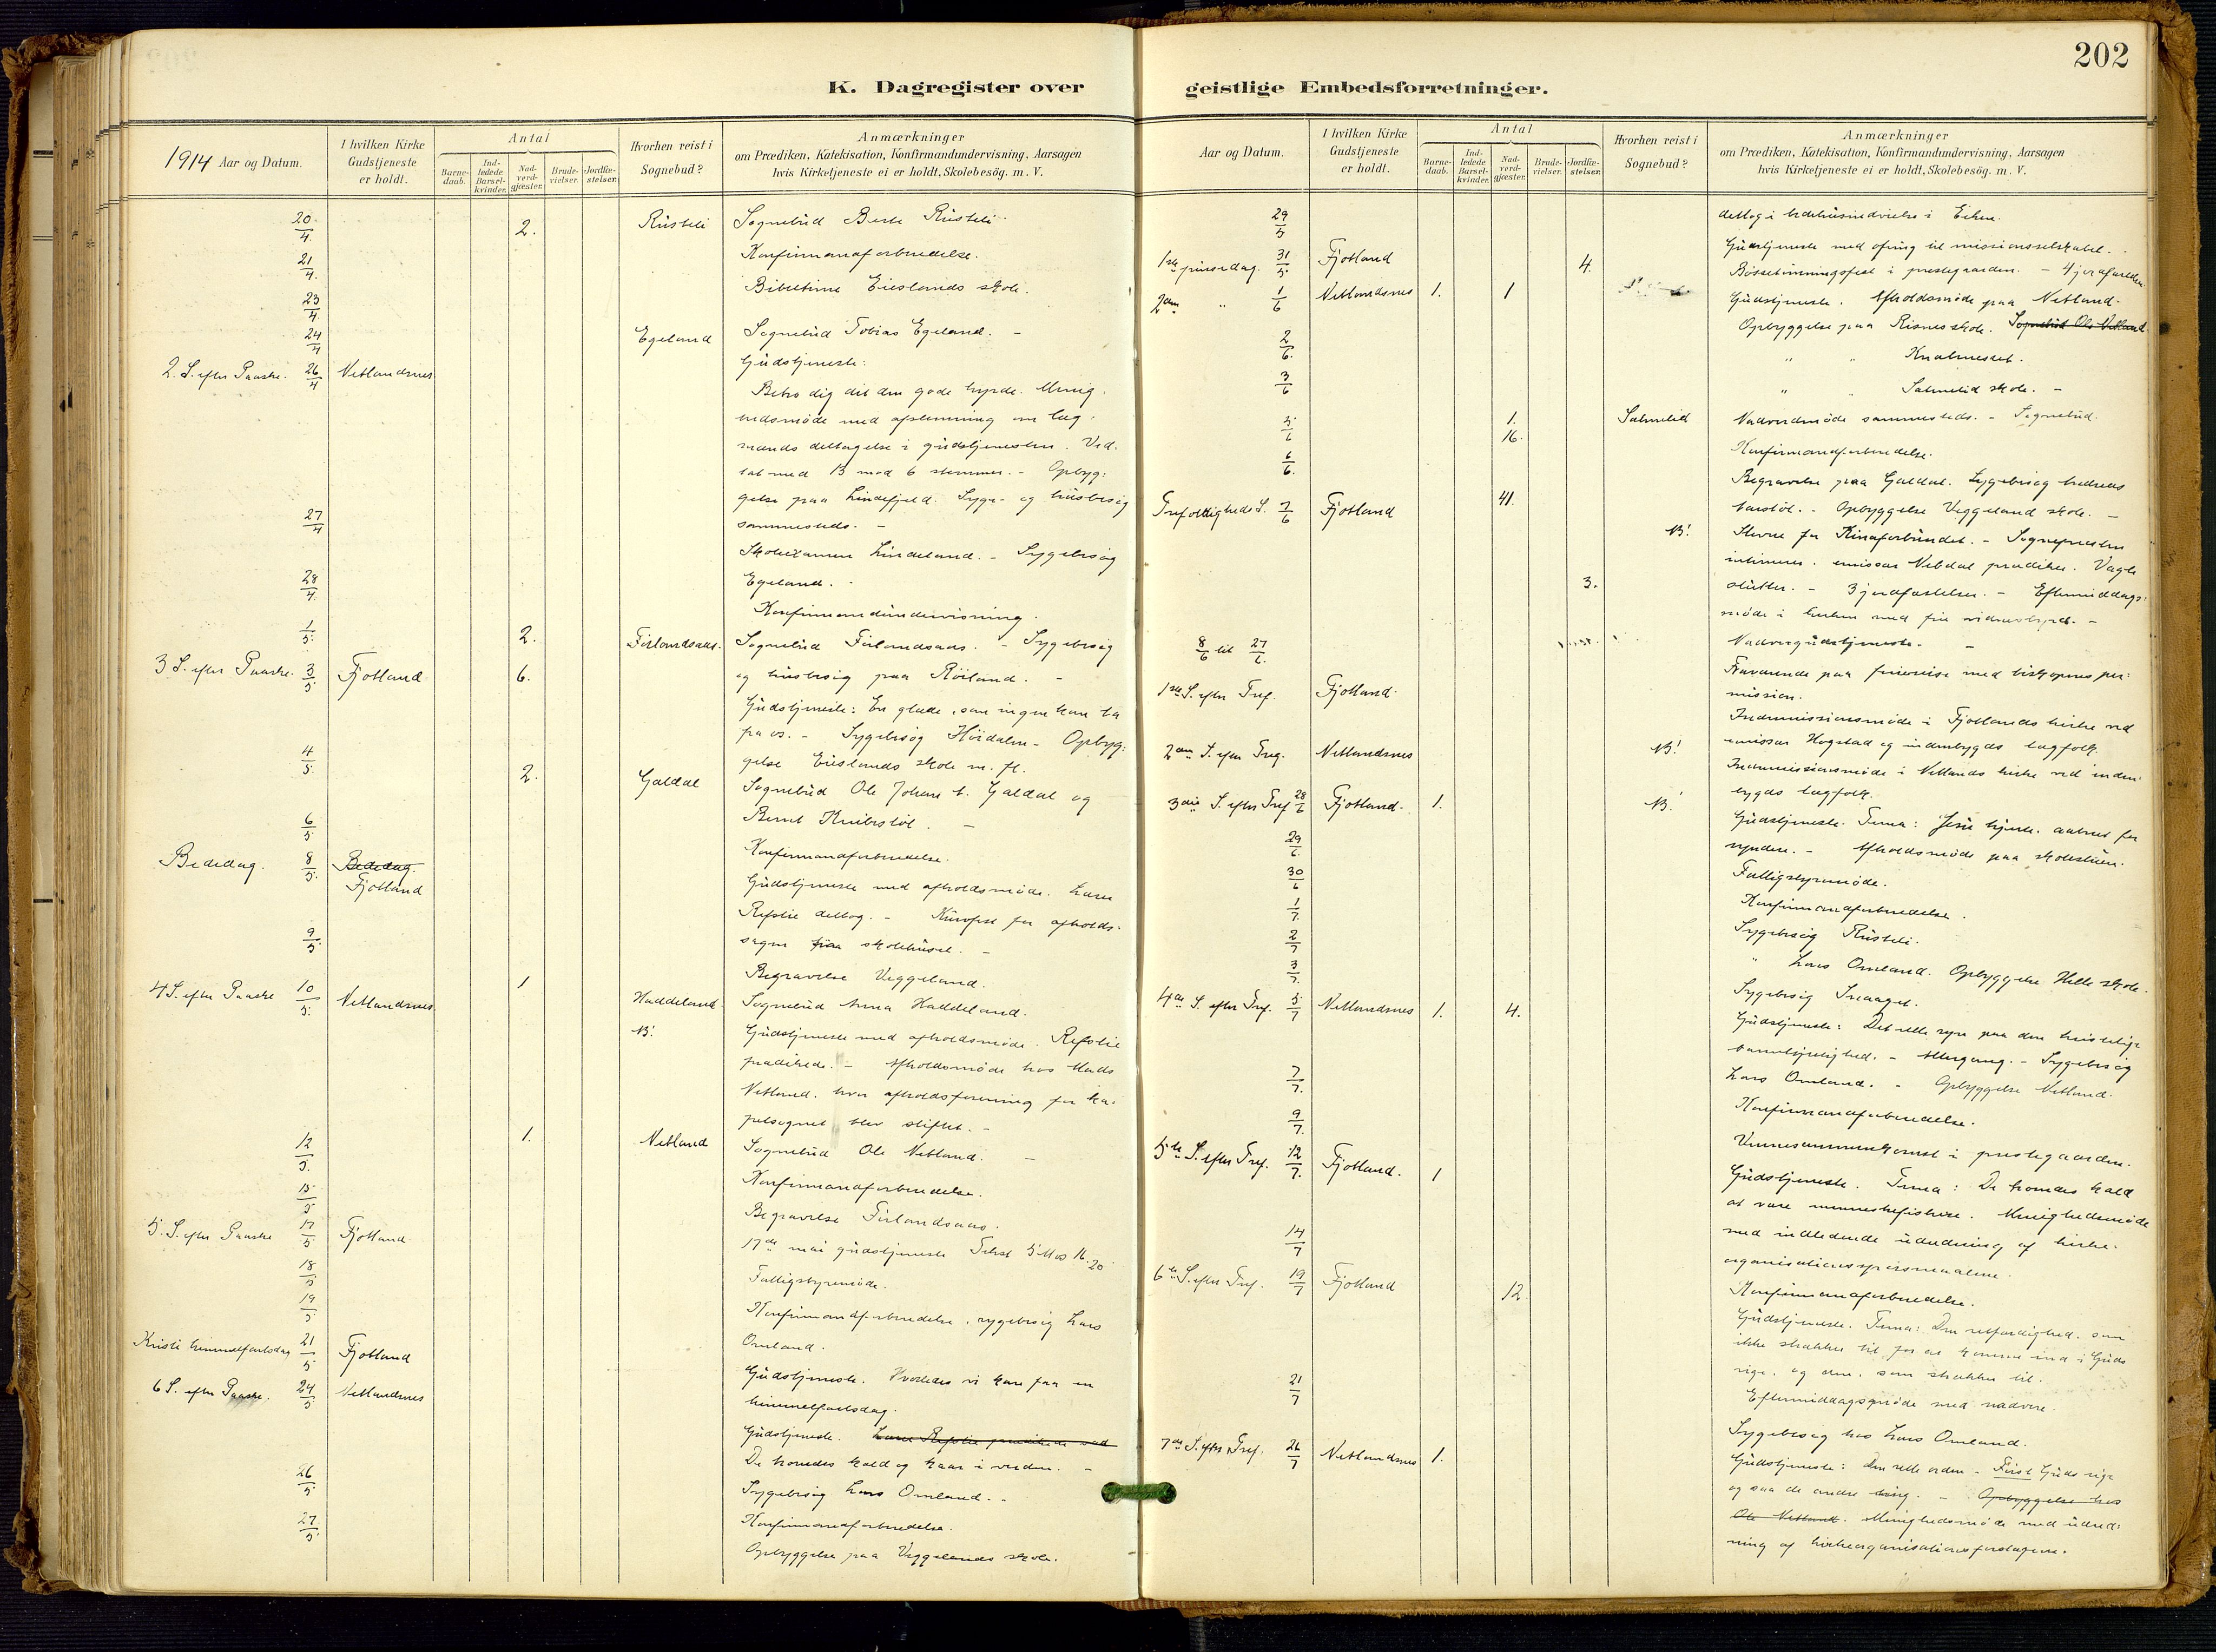 202
K. Dagregister over
1914 Aar og Datum.
I hvilken Kirke Gudstjeneste er holdt.
Antal
Barne-daab.
Ind-ledede Barsel-kvinder.
Nad-verd-gjæster.
Brude-vielser.
Jordfæ-stelser.
Hvorhen reist i Sognebud?
Anmærkninger
om Prædiken, Katekisation, Konfirmandundervisning, Aarsagen
hvis Kirketjeneste ei er holdt, Skolebesög. m. V.
20/4. 2. Rüsteli Sognebüd Berte Rüsteli.
21/4. Konfirmandforberedelse.
23/4. Bibeltime Eieslands skole.
24/4 Egeland Sognebüd Tobias Egeland. -
2. S. efter Paaske. 26/4 Netlandsnes Güdstjeneste:
Betro dig til den gode hyrde. Menig-
hedsmøde med afstemning om læg-
mænds deltagelse i güdstjenesten. Ved-
tat med 13 mod 6 stemmer. - Opbyg-
gelse paa Lindefjeld. Syge- og hüsbesög
27/4 sammesteds. -
Skoleexamen Lindeland. - Sygebesög
28/4. Egeland. -
Konfirmandündervisning.
1/5. 2. Firlandsaas. Sognebüd Firlandsaas. - Sygebesög
3 S. efter Paaske. 3/5. Fjotland 6. og hüsbesög paa Röiland. -
Güdstjeneste: En glæde, som ingen kan ta
fra os. - Sygebesög Höidalen - Opbyg-
4/5. gelse Eieslands skole m. fl.
2. Galdal Sognebüd Ole Johan t. Galdal og
6/5. Bernt Knibestöl. -
Konfirmandforberedelse.
Bededag. 8/5. Bededag. Fjotland Güdstjeneste med afholdsmøde. Lasse
Refstie deltog. - fest for afholds-
9/5. sagen paa skolehüset. -
Begravelse Veggeland.
4 S. efter Paaske 10/5. Netlandsnes 1 Haddeland. Sognebüd Anna Haddeland.
NB! Güdstjeneste med afholdsmøde. Refstie
prædikede. - Afholdsmøde hos Mads
Netland. hvor afholdsforening for ka-
pelsognet blev stiftet. -
12/5. 1. Netland Sognebüd Ole Netland. -
15/5 Konfirmandforberedelse.
Begravelse Firlandsaas.
5. S. efter Paaske 17/5 Fjotland 17de mai güdstjeneste Tekst 5 Mos 16.20
18/5 Fattigstyremøde.
19/5 Konfirmandforberedelse, sygebesög Lars
Omland.
Kristi himmelfartsdag 21/5. Fjotland Güdstjeneste. Hvorledes vi kan faa en
himmelfartsdag.
6 S. efter Paaske. 24/5 Netlandsnes Güdstjeneste. Lasse Refstie prædikede ved
De kald og kaar i verden. -
26/5. Sygebesög Lars Omland. -
27/5. Konfirmandforberedelse.
Opbyggelse paa Veggelands skole.
geistlige Embedsforretninger.
Aar og Datum.
I hvilken Kirke Gudstjeneste er holdt.
Antal
Barne-daab.
Ind-ledede Barsel-kvinder.
Nad-verd-gjæster.
Brude-vielser.
Jordfæ-stelser.
Hvorhen reist i Sognebud?
Anmærkninger
om Prædiken, Katekisation, Konfirmandundervisning, Aarsagen
hvis Kirketjeneste ei er holdt, Skolebesög. m. V.
29/5 deltog i bedehüsindvielse i Eiken.
1ste pinsedag. 31/5. Fjotland 4. Güdstjeneste med ofring til missionsselskabet.
Bössetømningsfest i prestegaarden. - 4 jordfæstelser.
2den " 1/6 Netlandsnes 1. 1 Güdstjeneste. Afholdsmøde paa Netland.
2/6. Opbyggelse paa Risnes skole. Sognebüd Ole Netland
" " Knabeneset.
3/6 " " Salmelid skole. -
5/6 1. 16. Salmelid Nadverdmøde sammesteds. - Sognebüd.
6/6. Konfirmandforberedelse.
Begravelse paa Galdal. Sygebesög
Trefoldigheds S. 7/6 Fjotland 41. Opbyggelse Veggeland skole. -
NB! Stevne for Kinaforbundet. - Sognepresten
emissær Nebdal prædiker. Vagle
3. slütter. - 3 jordfæstelser. - Eftermiddags-
møde i kirken med frie vidnesbyrd. -
8/6 til 27/6. Nadvergüdstjeneste. -
Fraværende paa feriereise med biskopens per-
mission.
1ste S. efter Tref. Fjotland. Indremissionsmøde i Fjotlands kirke ved
emissær Hogstad og indenbygds lægfolk.
2den S. efter Tref. Netlandsnes NB! Indremissionsmøde i Netlands kirke ved inden-
bygds lægfolk.
3die S. efter Tref 28/6 Fjotland. 1. NB! Güdstjeneste. Tema: Jesu hjerte aabnes for
syndere. - Afholdsmøde paa skolestüen.
29/6. Fattigstyremøde.
30/6 Konfirmandforberedelse.
1/7. Sygebesög Rüsteli.
2/7 " Lars Omland. Opbyggelse Helle skole.
3/7. Sygebesög
4de S. efter Tref. 5/7 Netlandsnes 1. 4. Güdstjeneste: Det rette syn paa den kristelige
barmhjertighed. - Altergang. - Sygebesög
Lars Omland. - Opbyggelse Netland.
7/7. Konfirmandforberedelse.
9/7. Vennesammenkomst i prestegaarden.
5te S. efter Tref. 12/7. Fjotland. 1 Güdstjeneste. Tema: De kald
at være menneskefiskere. Menighedsmøde
med indledende üdredning af kirke-
organisationsspørsmaalene.
14/7 Konfirmandforberedelse.
6te S. efter Tref. 19/7 Fjotland 12. Güdstjeneste. Tema: Den retfærdighed, som
ikke strækker til for at komme ind i Güds
rige, og den, som strækker til.
Eftermiddagsmøde med nadvere.
21/7 Sygebesög hos Lars Omland.
7de S. efter Tref. 26/7 Netlandsnes 1. Güdstjeneste: Den rette orden - Först Güds rige
og saa de andre ting. - Opbyggelse hos
Ole Netland. Menighedsmøde med üdred-
ning af kirkeorganisationsforslagene.